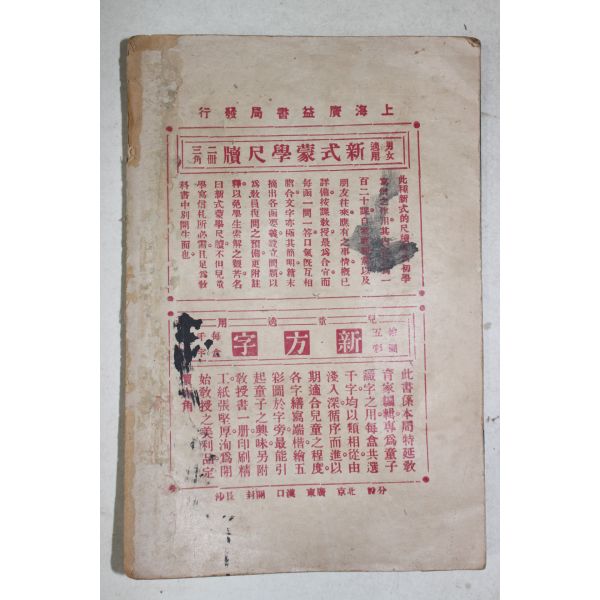 上海廣益書局發行
男女適用 新式蒙學尺牘 二冊三角
此種新式的尺牘 初學
寫信之作用其內 一
百二十課白 以及
朋友往來應有之事情概已
詳備按課教授最爲合宜而
每函一問一答口氣旣互相
脗合文字亦極其簡明緒末
摘出各函要義設立問題以
爲教員復問之預備更附註
釋以免學生索解之艱苦名
曰新式蒙學尺牘不但兒童
學寫信札所必需且足爲教
科書中別開生面也
兒童適用
繪圖五彩 新方字 每盒千字
此書係本局特延教
育家編輯專爲童子
識字之用每盒共選
千字均以類相從由
淺入深循序而進以
期適合兒童之程度
各字繕寫端楷繪五
彩圖於字旁最能引
起童子之興味另附
教授書一册印刷精
工紙張堅厚洵爲開
始教授之美利品定
價 角
分設 北京 廣東 漢口 開封 長沙